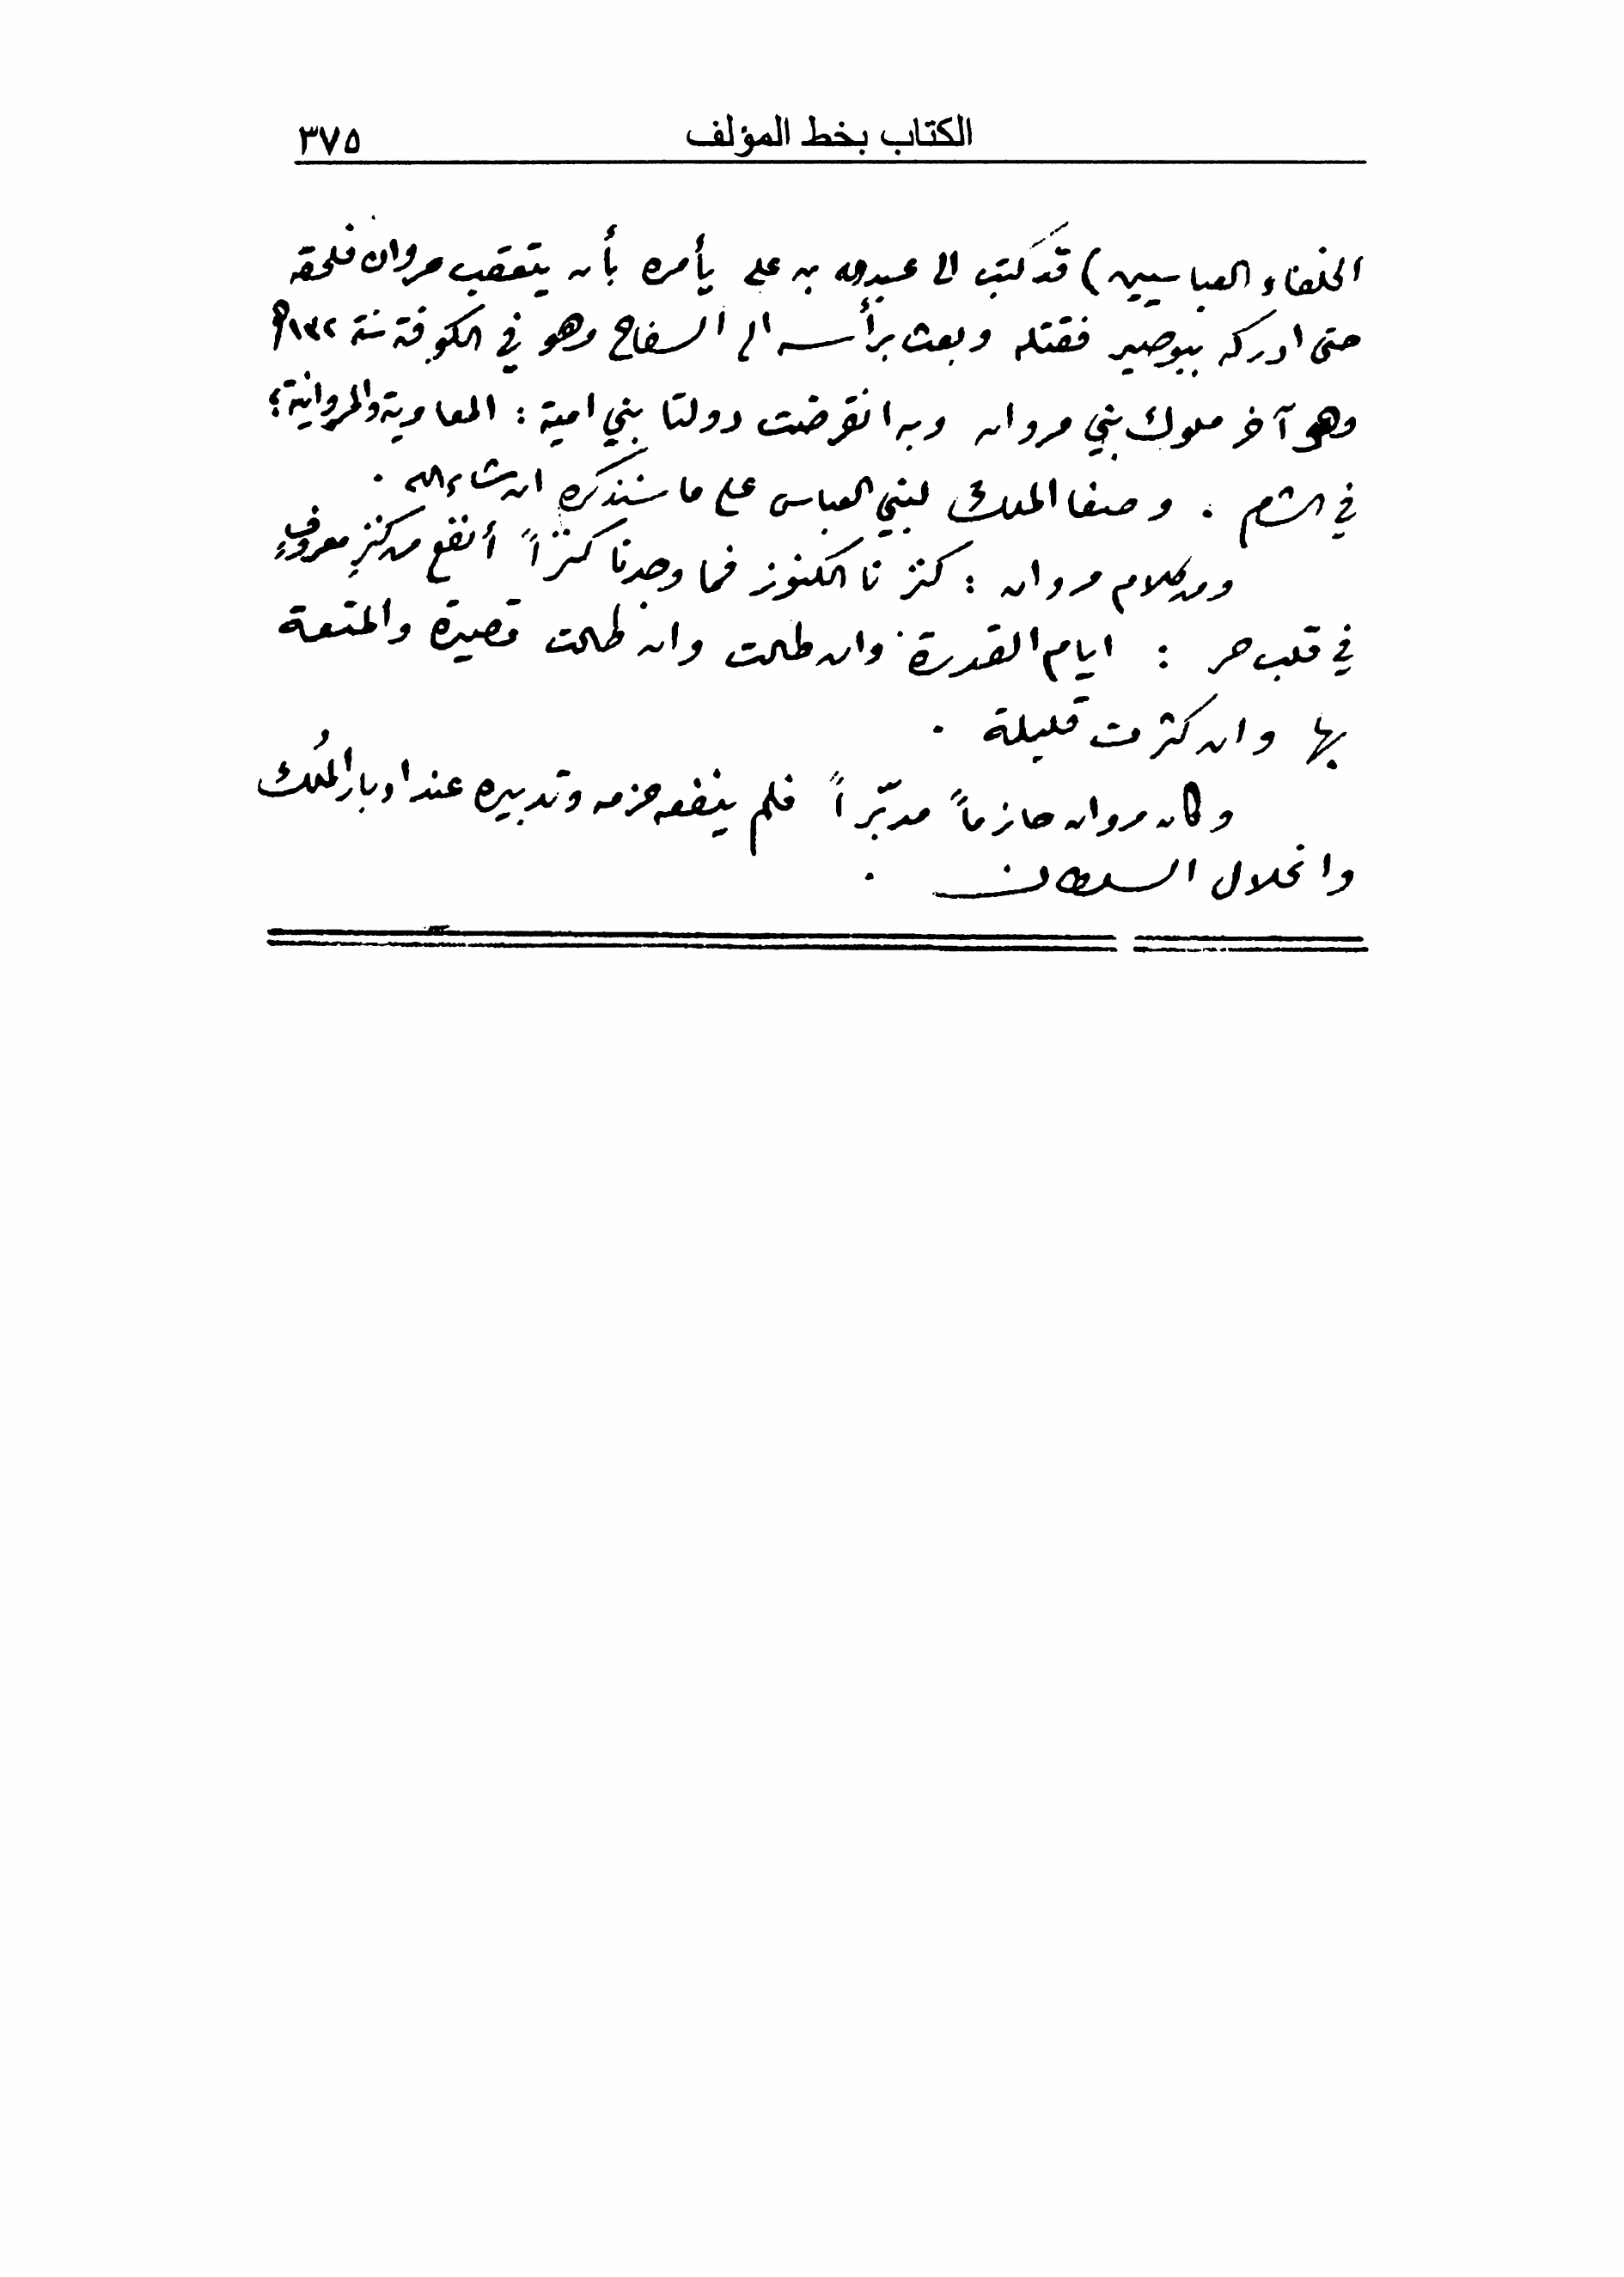 الكتاب بخط المؤلف ٣٧٥
الخلفاء العباسيين) قد كتب الى عبدالله بن علي يأمره بأن يتعقب مروان فلحقه
حتى ادركه ببوصير فقتله وبعث برأسه الى السفاح وهو في الكوفة سنة ١٣٢هـ
وهو آخر ملوك بني مروان وبه انقرضت دولتا بني امية : المعاوية والمروانية ؛
في الشام . وصفا الملك لبني العباس على ما سنذكره ان شاء الله .
ومن كلام مروان : كنزنا الكنوز فما وجدنا كنزاً أنفع من كنزِ معروفٍ
في قلب حر : ايام القدرة وان طالت وان طالت قصيرة والمتعة
بها وان كثرت قليلة .
وكان مروان حازماً مدبّراً فلم ينفعه حزمه وتدبيره عند ادبار المُلك
وانحلال السلطان .